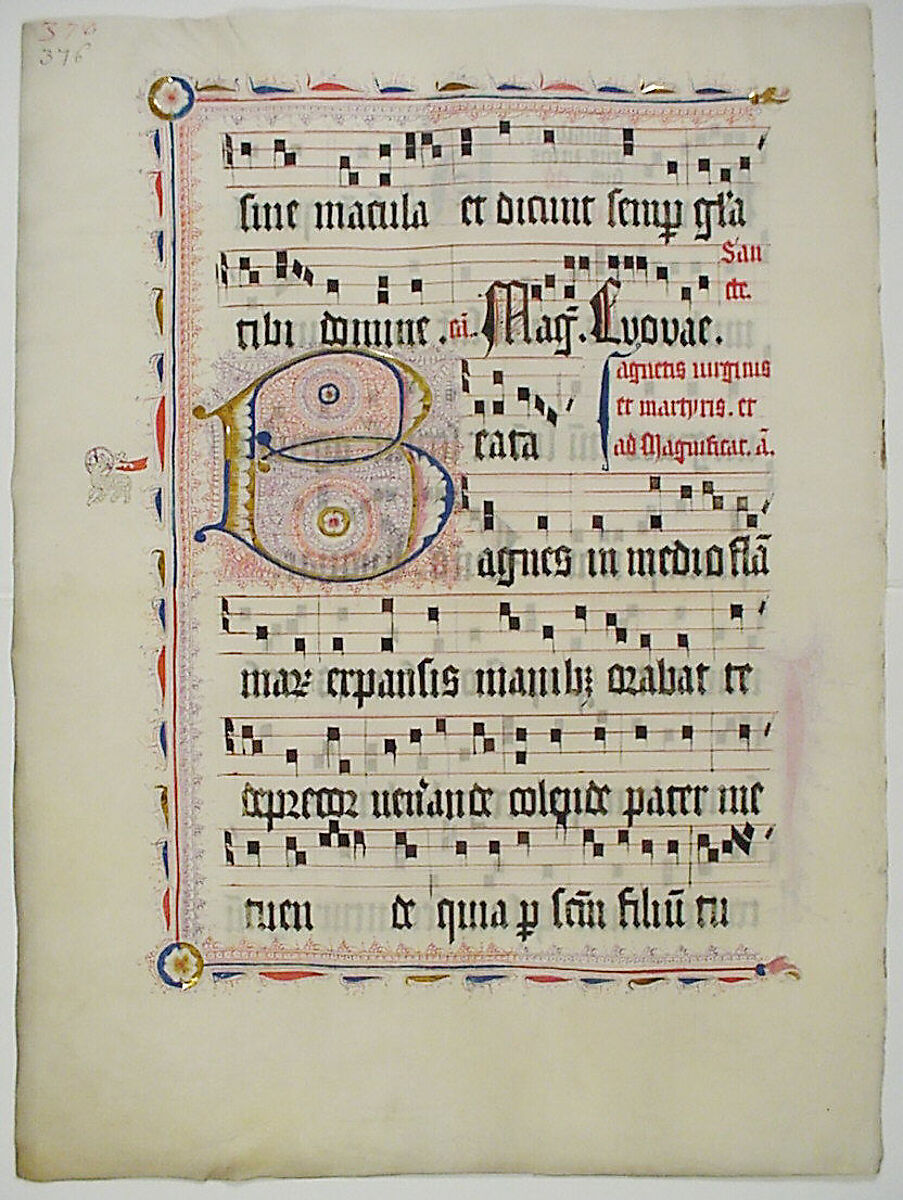 370
376
sine macula et dicunt semp gl̄a
San
cte.
tibi domine .eū. Mag̃. Evovae.
agnetis uirginis
et martyris. et
ad Magnificat. ā.
Beata
agnes in medio flā
maꝝ expansis manibꝫ orabat te
deprecor ueñande colende pater me
tuen de quia p̱ scm̄ filiū tu